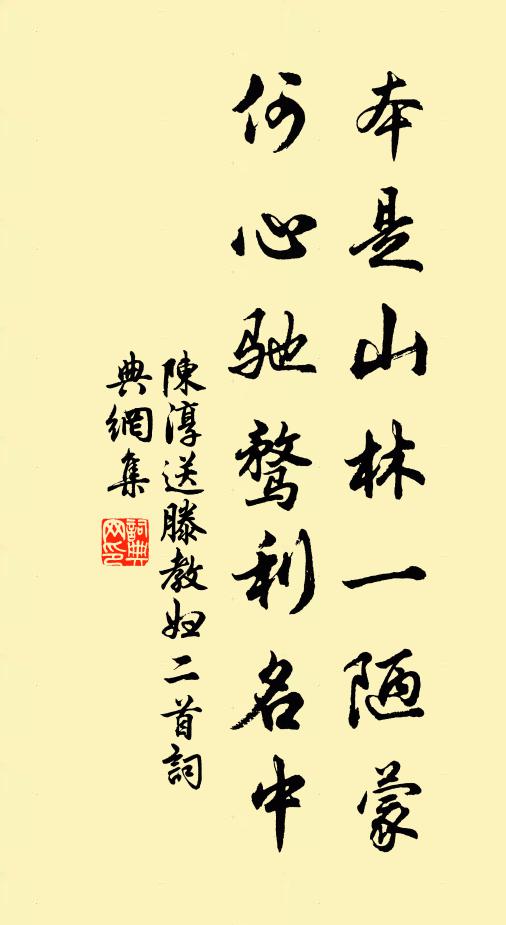 本是山林一陋蒙
何心馳騖利名中
陳淳送滕教妞二首詞
典網集
詞典網印